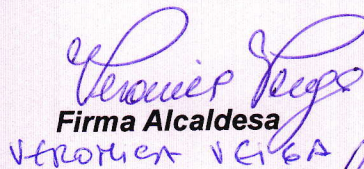 Veronica Veiga
Firma Alcaldesa
VERONICA VEIGA